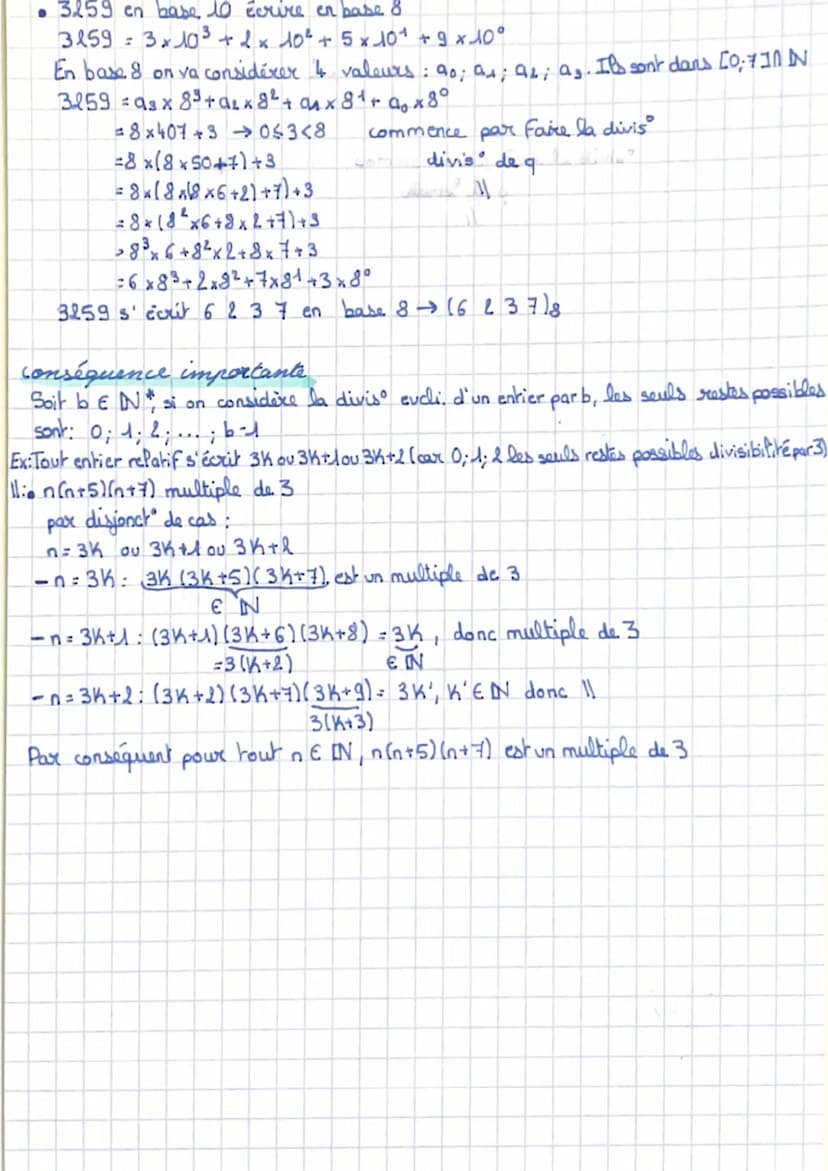 • 3259 en base 10 écrire en base 8
3259 = 3 × 10³ + 2 × 10² + 5 × 10¹ + 9 × 10⁰
En base 8 on va considérer 4 valeurs : a₀ ; a₁ ; a₂ ; a₃. Ils sont dans [0;7]∩ℕ
3259 = a₃ × 8³ + a₂ × 8² + a₁ × 8¹ + a₀ × 8⁰
= 8 × 407 + 3 → 0≤3<8 commence par faire la divis°
= 8 × (8 × 50 + 7) + 3 divis° de q
= 8 × (8 × (8 × 6 + 2) + 7) + 3 \\
= 8 × (8² × 6 + 8 × 2 + 7) + 3
= 8³ × 6 + 8² × 2 + 8 × 7 + 3
= 6 × 8³ + 2 × 8² + 7 × 8¹ + 3 × 8⁰
3259 s'écrit 6 2 3 7 en base 8 → (6 2 3 7)₈
conséquence importante
Soit b ∈ ℕ*, si on considère la divis° eucli. d'un entier par b, les seuls restes possibles
sont : 0 ; 1 ; 2 ; ... ; b-1
Ex: Tout entier relatif s'écrit 3K ou 3K+1 ou 3K+2 (car 0 ; 1 ; 2 les seuls restes possibles divisibilité par 3)
\\ : • n(n+5)(n+7) multiple de 3
par disjonct° de cas :
n = 3K ou 3K+1 ou 3K+2
- n = 3K : 3K (3K+5)(3K+7), est un multiple de 3
∈ ℕ
- n = 3K+1 : (3K+1)(3K+6)(3K+8) = 3K, donc multiple de 3
=3(K+2) ∈ ℕ
- n = 3K+2 : (3K+2)(3K+7)(3K+9) = 3K', K' ∈ ℕ donc \\
3(K+3)
Par conséquent pour tout n ∈ ℕ, n(n+5)(n+7) est un multiple de 3